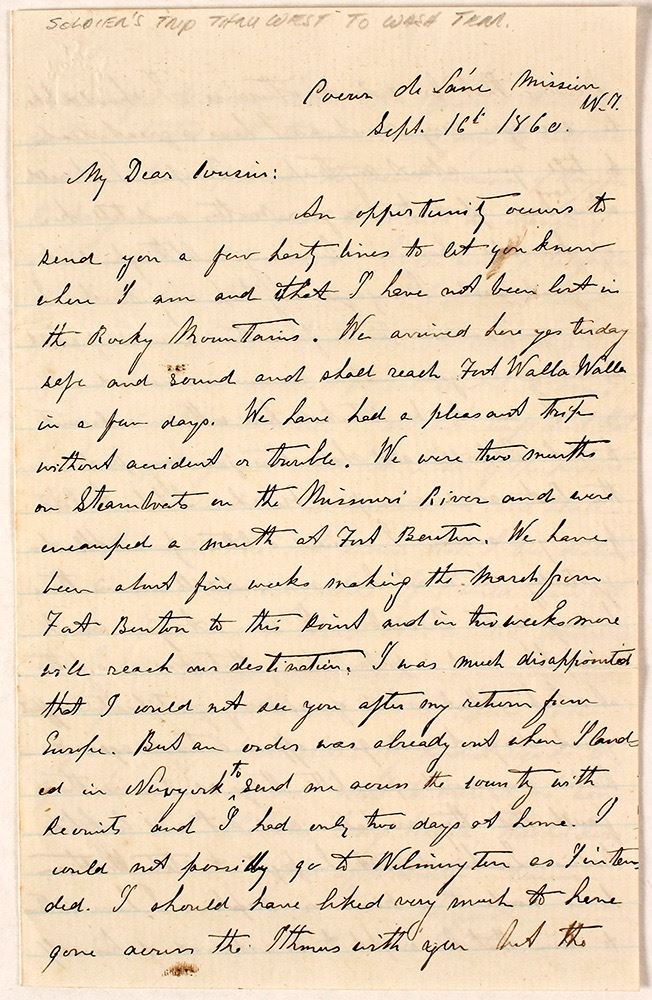 SOLDIER'S TRIP THRU WEST TO WASH TERR.
Coeur de Láne Mission
W.T.
Sept. 16t 1860.
My Dear Cousin:
An opportunity occurs to
send you a few hasty lines to let you know
where I am and that I have not been lost in
the Rocky Mountains. We arrived here yesterday
safe and sound and shall reach Fort Walla Walla
in a few days. We have had a pleasant trip
without accident or trouble. We were two months
on Steamboats on the Missouri River and were
encamped a month at Fort Benton. We have
been about five weeks making the march from
Fort Benton to this Point and in two weeks more
will reach our destination. I was much disappointed
that I could not see you after my return from
Europe. But an order was already out when I land=
ed in Newyork to send me across the country with
Recruits and I had only two days at home. I
could not possibly go to Wilmington as I inten=
ded. I should have liked very much to have
gone across the Ithmus with you but the